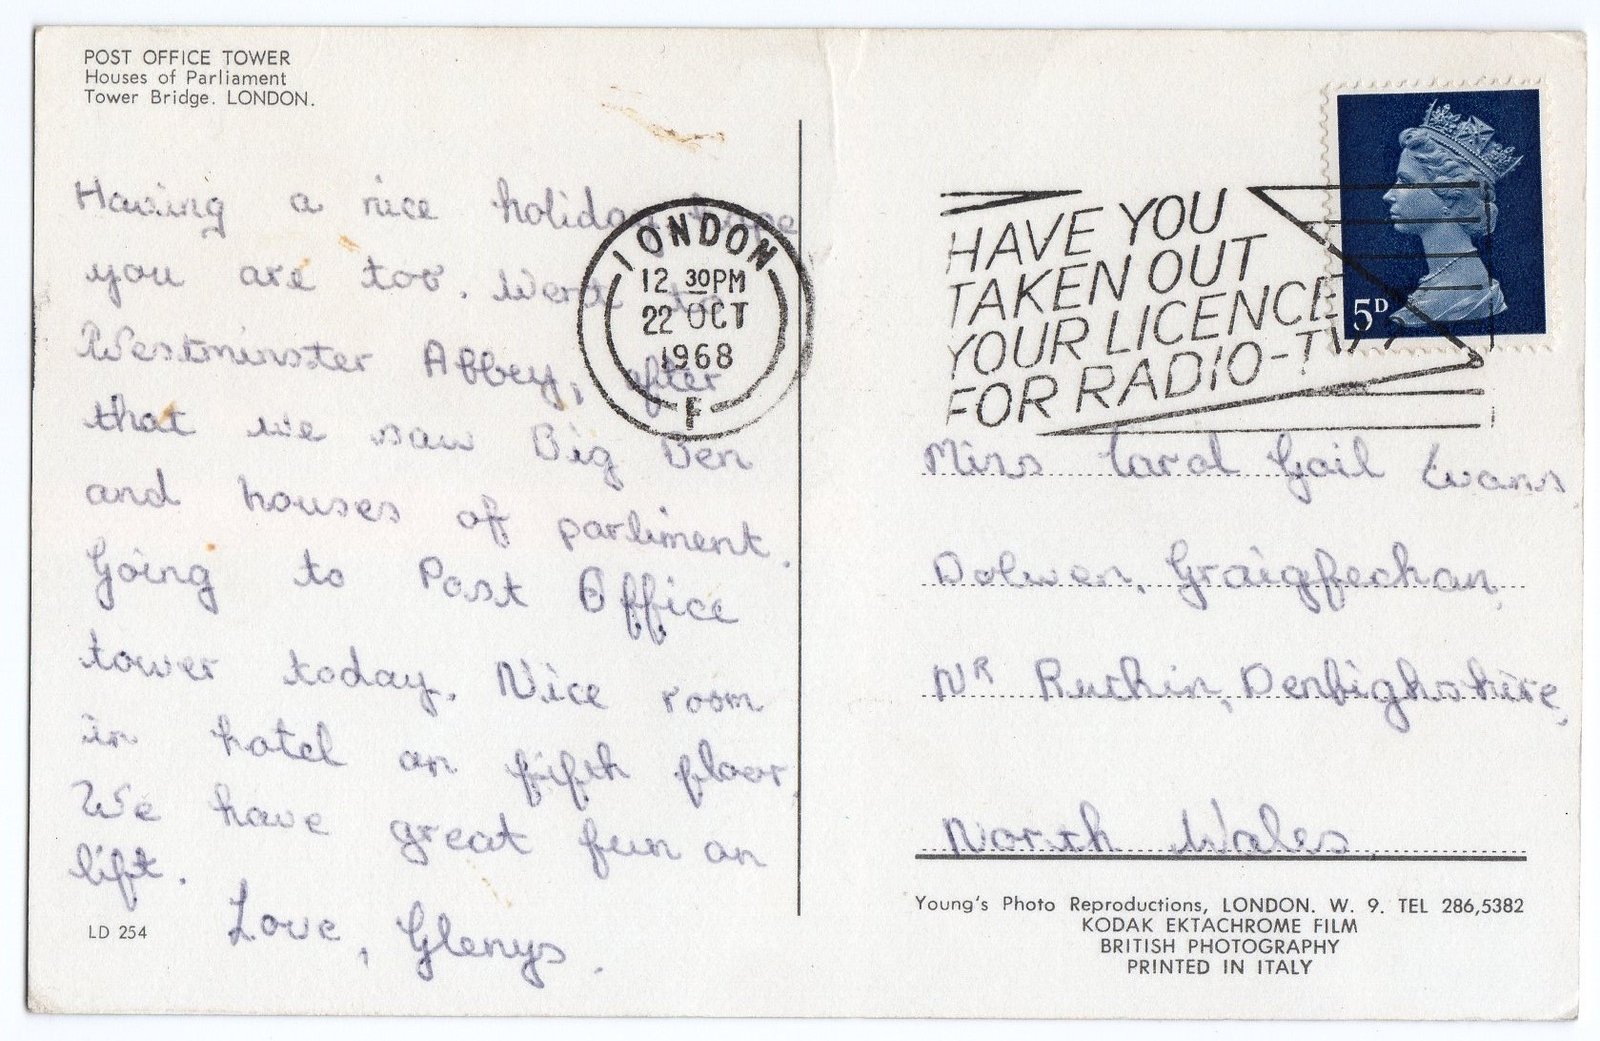 POST OFFICE TOWER
Houses of Parliament
Tower Bridge. LONDON.
Having a nice holiday, hope
you are too. Went to
Westminster Abbey, after
that we saw Big Ben
and houses of parliment.
Going to Post Office
tower today. Nice room
in hotel on fifth floor,
We have great fun on
lift.
Love, Glenys.
LD 254
LONDON
12 30PM
22 OCT
1968
F
HAVE YOU
TAKEN OUT
YOUR LICENCE
FOR RADIO-TV
5D
Miss Carol Gail Evans,
Dolwen, Graigfechan,
NR Ruthin, Denbighshire,
North Wales.
Young's Photo Reproductions, LONDON. W. 9. TEL 286,5382
KODAK EKTACHROME FILM
BRITISH PHOTOGRAPHY
PRINTED IN ITALY